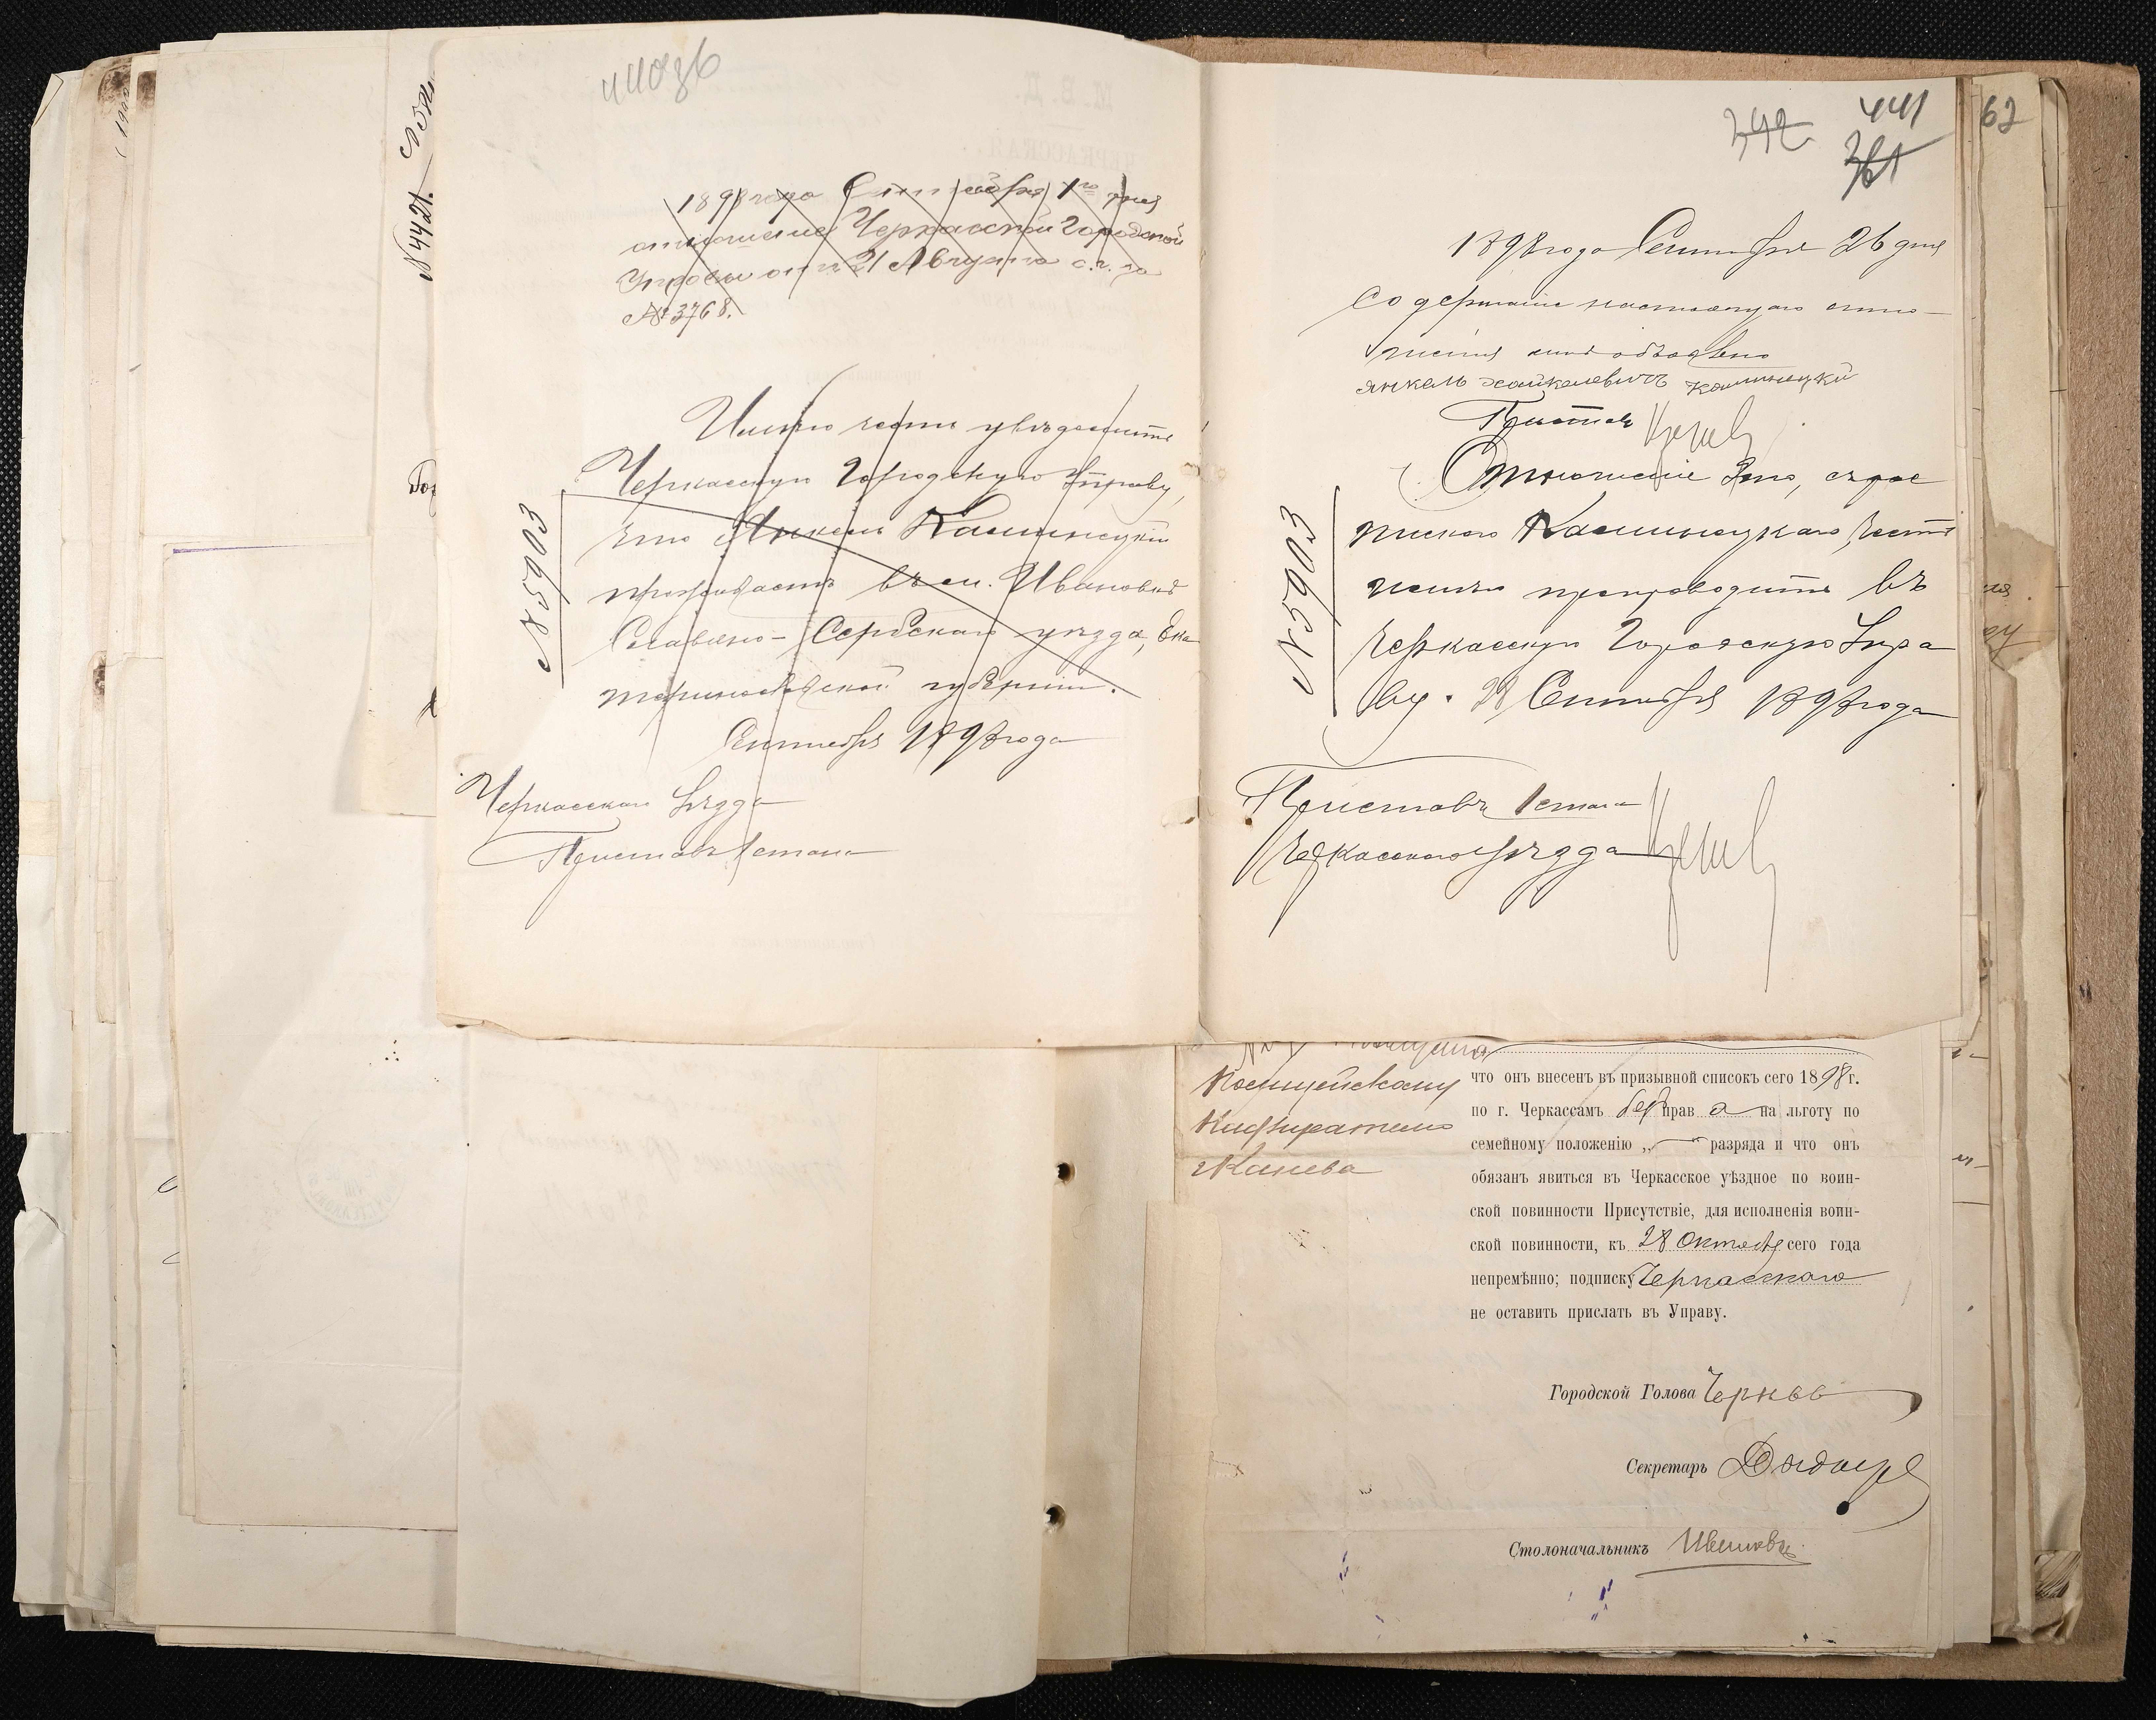 440зб
1898 года Сентября 1го дня
отношение Черкасской Городской
Управы от 21 Августа с.г. за
№ 3768.
Имею честь увѣдомить
Черкасскую Городскую Управу,
что Янкель Каминецкій
проживаетъ въ сл. Ивановкѣ
Славяно-Сербскаго уѣзда, Ека
теринославской губерніи.
Сентября 1898 года
Черкасскаго уѣзда
Приставъ 1 стана
№ 5903
№ 4421
342
441
361
62
1898 года Сентября 26 дня
Содержаніе настоящаго отно-
шенія мнѣ объявлено
янкель хайкелевичъ каминецкій
Приставъ
Отношеніе это, съ рос
пискою Каминецкаго, честь
имѣю препроводить въ
Черкасскую Городскую Упра
ву. 28 Сентября 1898 года
Приставъ 1 стана
Черкасскаго уѣзда
№ 5903
Полицейскому
Надзирателю
г Канева
что онъ внесенъ въ призывной списокъ сего 1898 г.
по г. Черкассамъ безъ права на льготу по
семейному положенію „—“ разряда и что онъ
обязанъ явиться въ Черкасское уѣздное по воин-
ской повинности Присутствіе, для исполненія воин-
ской повинности, къ 28 Октября сего года
непремѣнно; подписку Черкасскаго
не оставить прислать въ Управу.
Городской Голова
Секретарь
Столоначальникъ